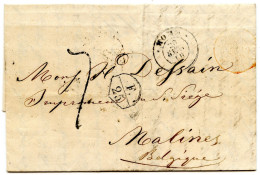 Mons. H. Dessain
Imprimeur du St Siège
F.
25
Malines
Belgique